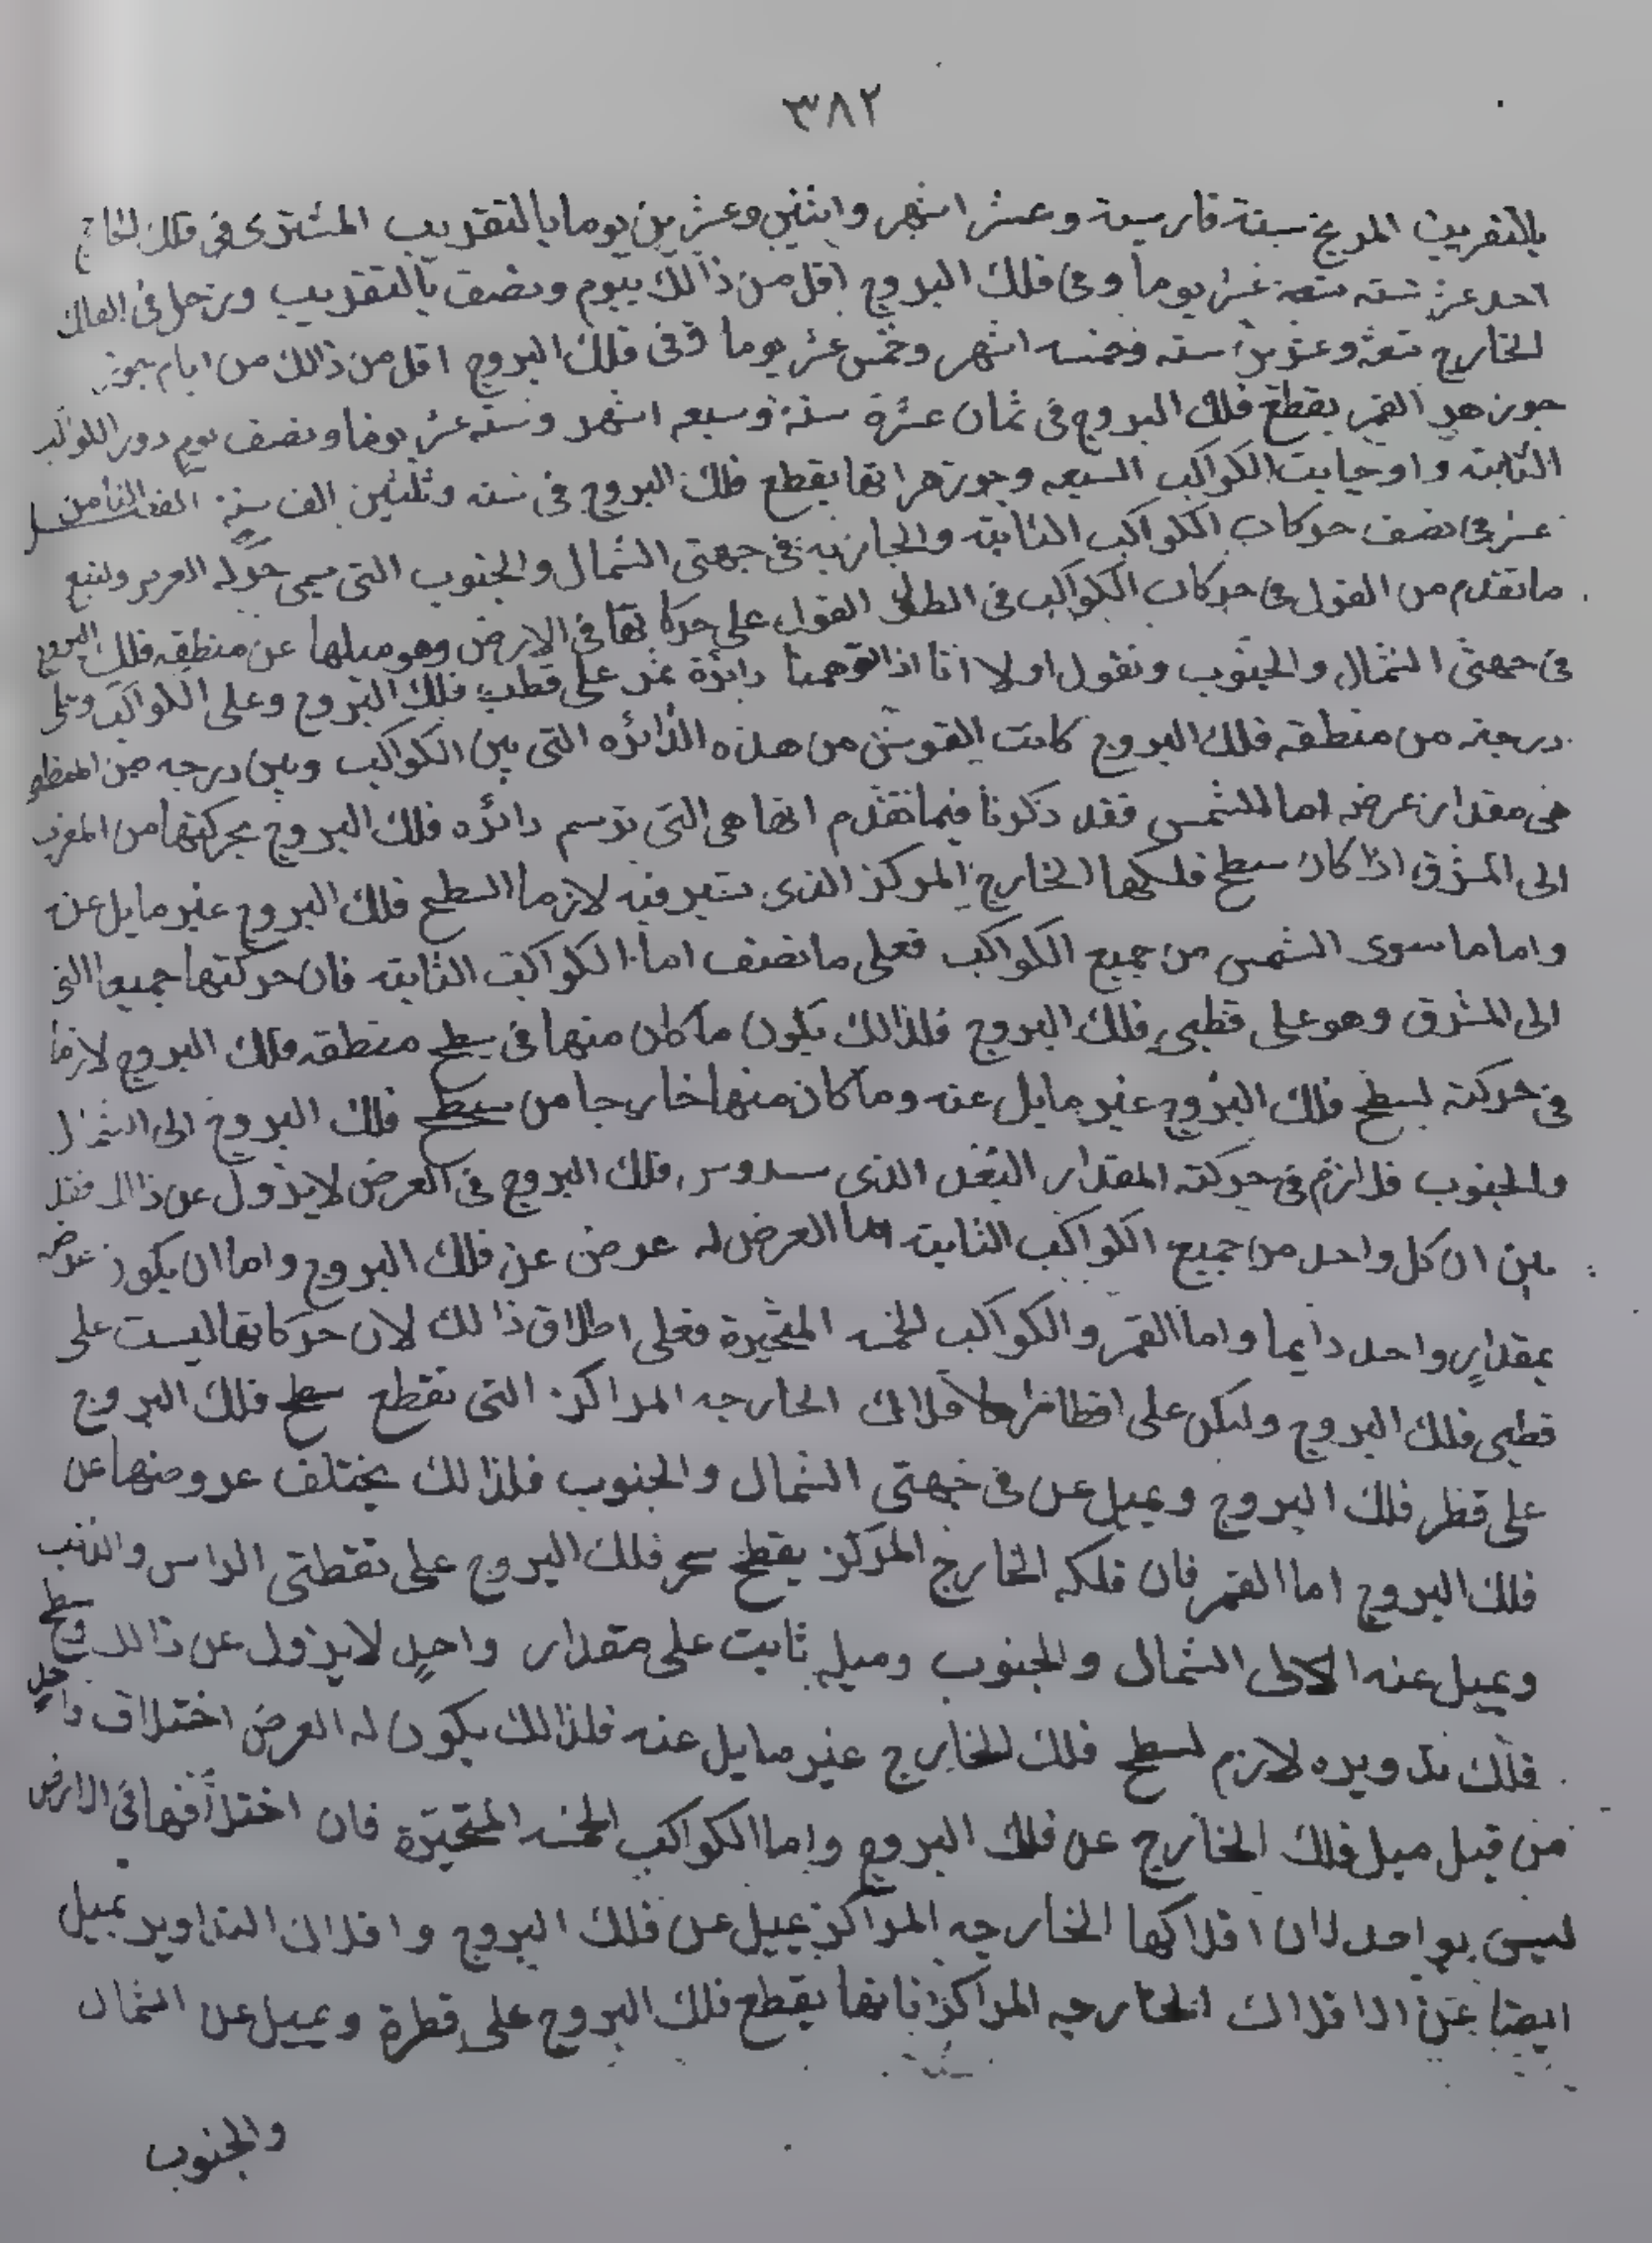 ٣٨٢
بالتقريب المريخ سنة فارسية وعشر اشهر واثنين وعشرين يوما بالتقريب المشترى فى فلك الخارج
احد عشر سنه تسعة عشر يوما وفى فلك البروج اقل من ذالك بيوم ونصف بالتقريب وزحل فى الفلك
الخارج تسعة وعشرين سنه وخمسه اشهر وخمس عشر يوما وفى فلك البروج اقل من ذالك من ايام
جوزهر القمر يقطع فلك البروج فى ثمان عشرة سنة وسبعه اشهر وسته عشر يوما ونصف يوم دور الكواكب
الثابته واوجايت الكواكب السبعه وجوزهراتها يقطع فلك البروج فى سته وثلثين الف سنة الفصل الثامن
عشر فى نصف حركات الكواكب الثابته والجاريه فى جهتى الشمال والجنوب التى سمى حركه العرير ولنتبع
ما تقدم من القول فى حركات الكواكب فى الطول القول على حركاتها فى الارض وهو ميلها عن منطقه فلك البروج
فى جهتى الشمال والجنوب ونقول اولا انا اذا توهمنا دائرة تمر على قطب فلك البروج وعلى الكواكب وعلى
درجته من منطقه فلك البروج كانت القوس من هذه الدائره التى بين الكواكب وبين درجه من المنطقه
هى مقدار عرضه اما الشمس فقد ذكرنا فيما تقدم انها هى التى ترسم دائره فلك البروج بحركتها من المغرب
الى المشرق اذا كان سطح فلكها الخارج المركز الذى ستير فيه لازما السطح فلك البروج غير مايل عنه
واما ما سوى الشمس من جميع الكواكب فعلى ما نصف اما الكواكب الثابته فان حركتها جميعا التى
الى المشرق وهو على قطبى فلك البروج فلذالك يكون ما كان منها فى سطح منطقه فلك البروج لازما
فى حركته لسطح فلك البروج غير مايل عنه وما كان منها خارجا من سطح فلك البروج الى الشمال
والجنوب فلازم فى حركته المقدار البعد الذى فلك البروج فى العرض لايزول عن ذالك فقد
بين ان كل واحد من جميع الكواكب الثابته اما العرض له عرض عن فلك البروج واما ان يكون عرضه
بمقدار واحد دايما واما القمر والكواكب الخمسه المتحيرة فعلى اطلاق ذالك لان حركاتها ليست على
قطبى فلك البروج ولكن على اقطاب افلاك الخارجه المراكز التى تقطع سطح فلك البروج
على قطر فلك البروج ويميل عن فى جهتى الشمال والجنوب فلذالك يختلف عروضها عن
فلك البروج اما القمر فان فلكه الخارج المركز يقطع فلك البروج على نقطتى الراس والذنب
ويميل عنه الى الشمال والجنوب وميله ثابت على مقدار واحدٍ لايزول عن ذالك وسطح
فلك تدويره لازم لسطح فلك الخارج غير مايل عنه فلذالك يكون له العرض اختلاف واحدٍ
من قبل ميل فلك الخارج عن فلك البروج واما الكواكب الخمسه المتحيّرة فان اختلافها فى الارض
ليس بواحد لان افلاكها الخارجه المراكز يميل عن فلك البروج وافلاك التداوير يميل
ايضا عن الافلاك الخارجه المراكز فانها يقطع فلك البروج على قطرة ويميل عن الشمال
والجنوب